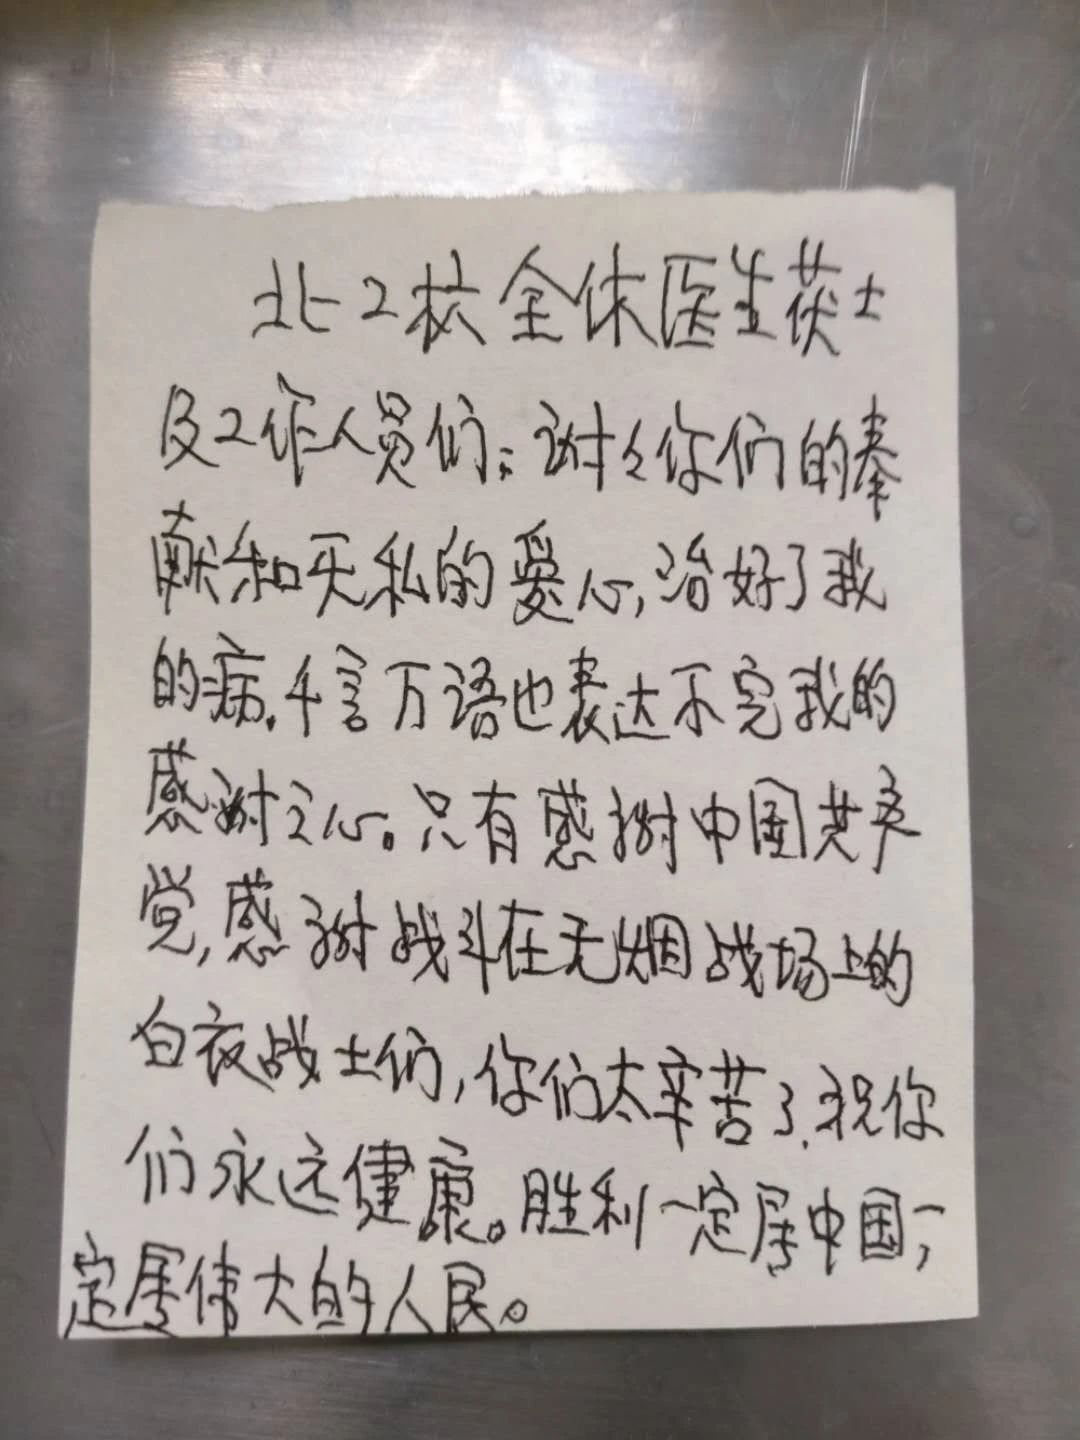 北2校全体医生茯士
及工作人员们：谢々你们的奉
献和无私的爱心，治好了我
的病。千言万语也表达不完我的
感谢之心。只有感谢中国共产
党，感谢战斗在无烟战场上的
白衣战士们，你们太辛苦了，祝你
们永远健康。胜利一定属中国，一
定属伟大的人民。